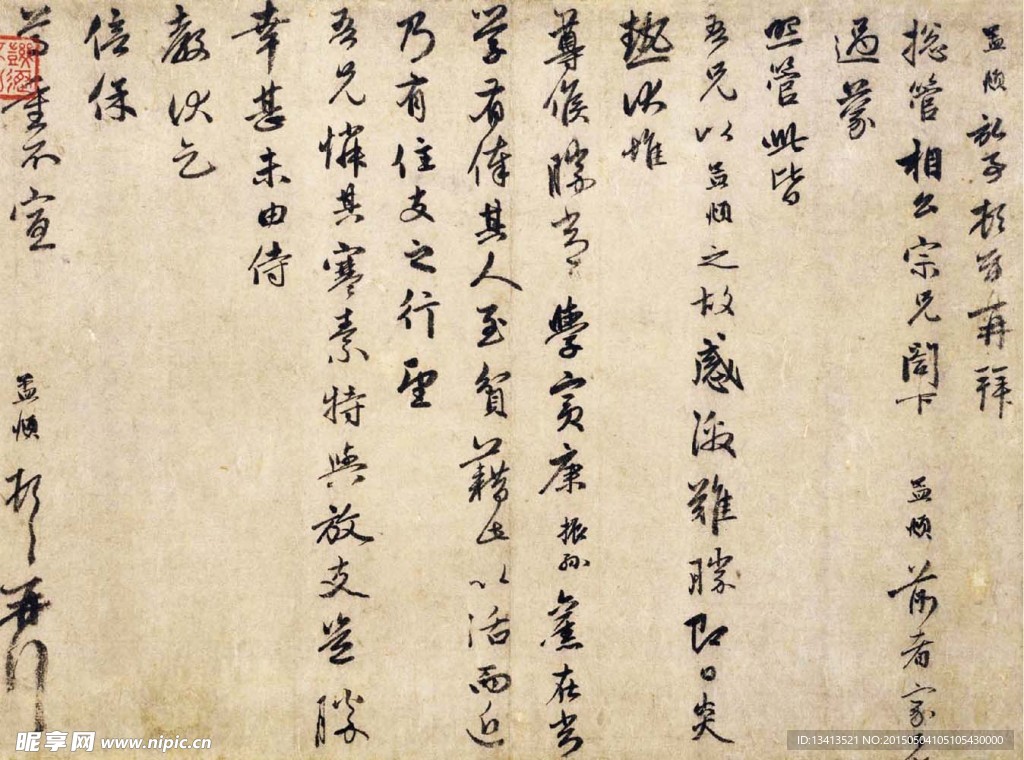 孟頫記事頓首再拜
總管相公宗兄閣下 孟頫前者家
過蒙
照管此皆
吾兄以孟頫之故感激難勝即日炎
熱伏惟
尊候勝常 學賓康振孫舊在常
學有俸其人至貧藉此以活而近
乃有住支之行望
吾兄憐其寒素特與放支豈勝
幸甚未由侍
教伏乞
信保
尊重不宣
孟頫頓首再拜
昵享网 www.nipic.cn
ID:13413521 NO:20150504105105430000